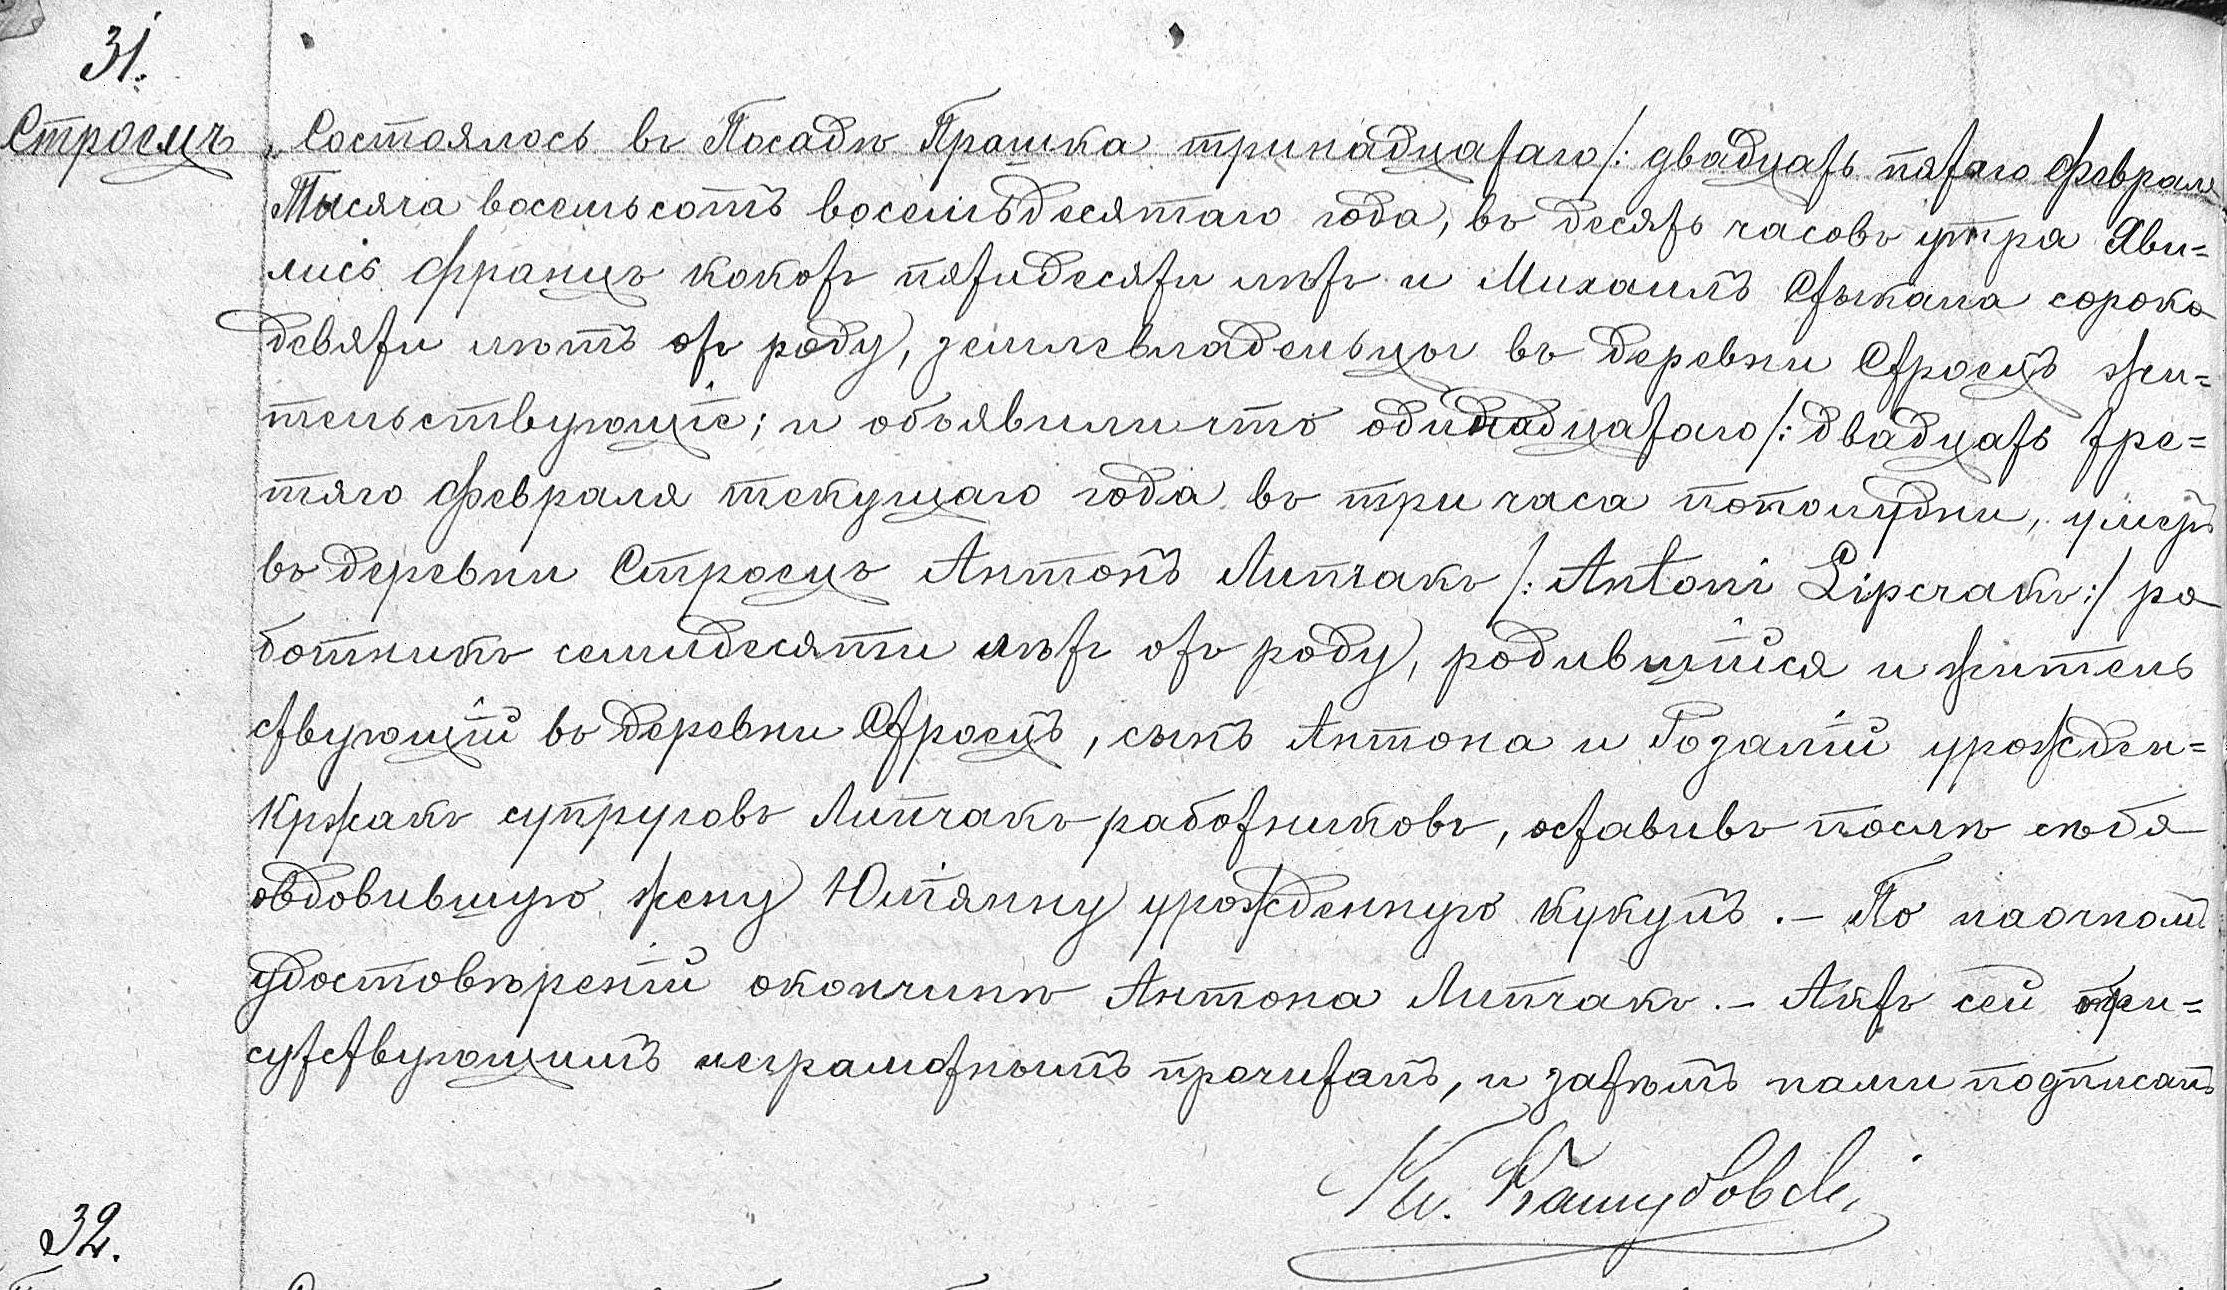 31.
Строецъ
Состоялось въ Посадѣ Прашка тринадцатаго /: двадцать пятаго Февраля
Тысяча восемьсотъ восемьдесятаго года, въ десять часовъ утра Яви=
лись Францъ Кокотъ пятидесяти лѣтъ и Михаилъ Стыкала сорока
девяти лѣтъ отъ роду, землевладельцы въ деревни Строецъ жи=
тельствующіе; и объявили что одинадцатаго /: двадцать тре=
тяго Февраля текущаго года въ три часа пополудни, умеръ
въ деревни Строецъ Антонъ Липчакъ /: Antoni Lipczakъ :/ ра
ботникъ семидесяти лѣтъ отъ роду, родившійся и житель
ствующій въ деревни Строецъ, сынъ Антона и Розаліи урожден=
Кржакъ супруговъ Липчакъ работниковъ, оставивъ послѣ себя
овдовившую жену Юліянну урожденную Кукулъ. – По наочномъ
удостовѣреніи окончинѣ Антона Липчакъ. – Актъ сей при=
сутствующимъ неграмотнымъ прочитанъ, и затѣмъ нами подписанъ
Кс. Кашубовскі
32.